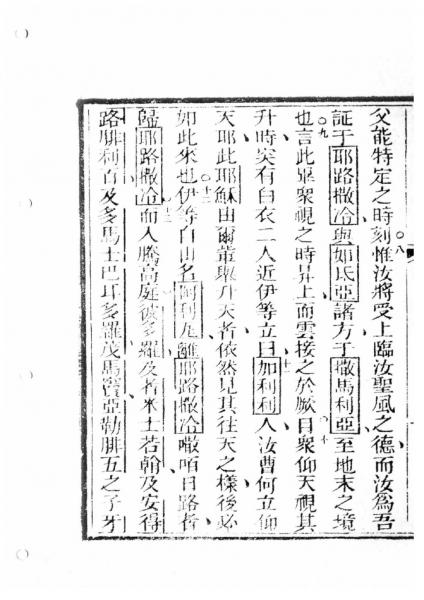 父能特定之時刻○八惟汝將受上臨汝聖風之德而汝為吾
証于耶路撒冷與如氐亞諸方于撒馬利亞至地末之境
○九也言此畢眾視之時昇上而雲接之於厥目○十眾仰天視其
升時突有白衣二人近伊等立十一曰加利利人汝曹何立仰
天耶此耶穌由爾叢與升天者依然見其往天之樣後必
如此來也○十二伊等自山名阿利離耶路撒冷咟日路者
歸耶路撒冷十三而入騰高庭彼多羅及者米士若翰及安得
路腓利百及多馬士巴耳多羅茂馬竇亞勒腓五之子牙